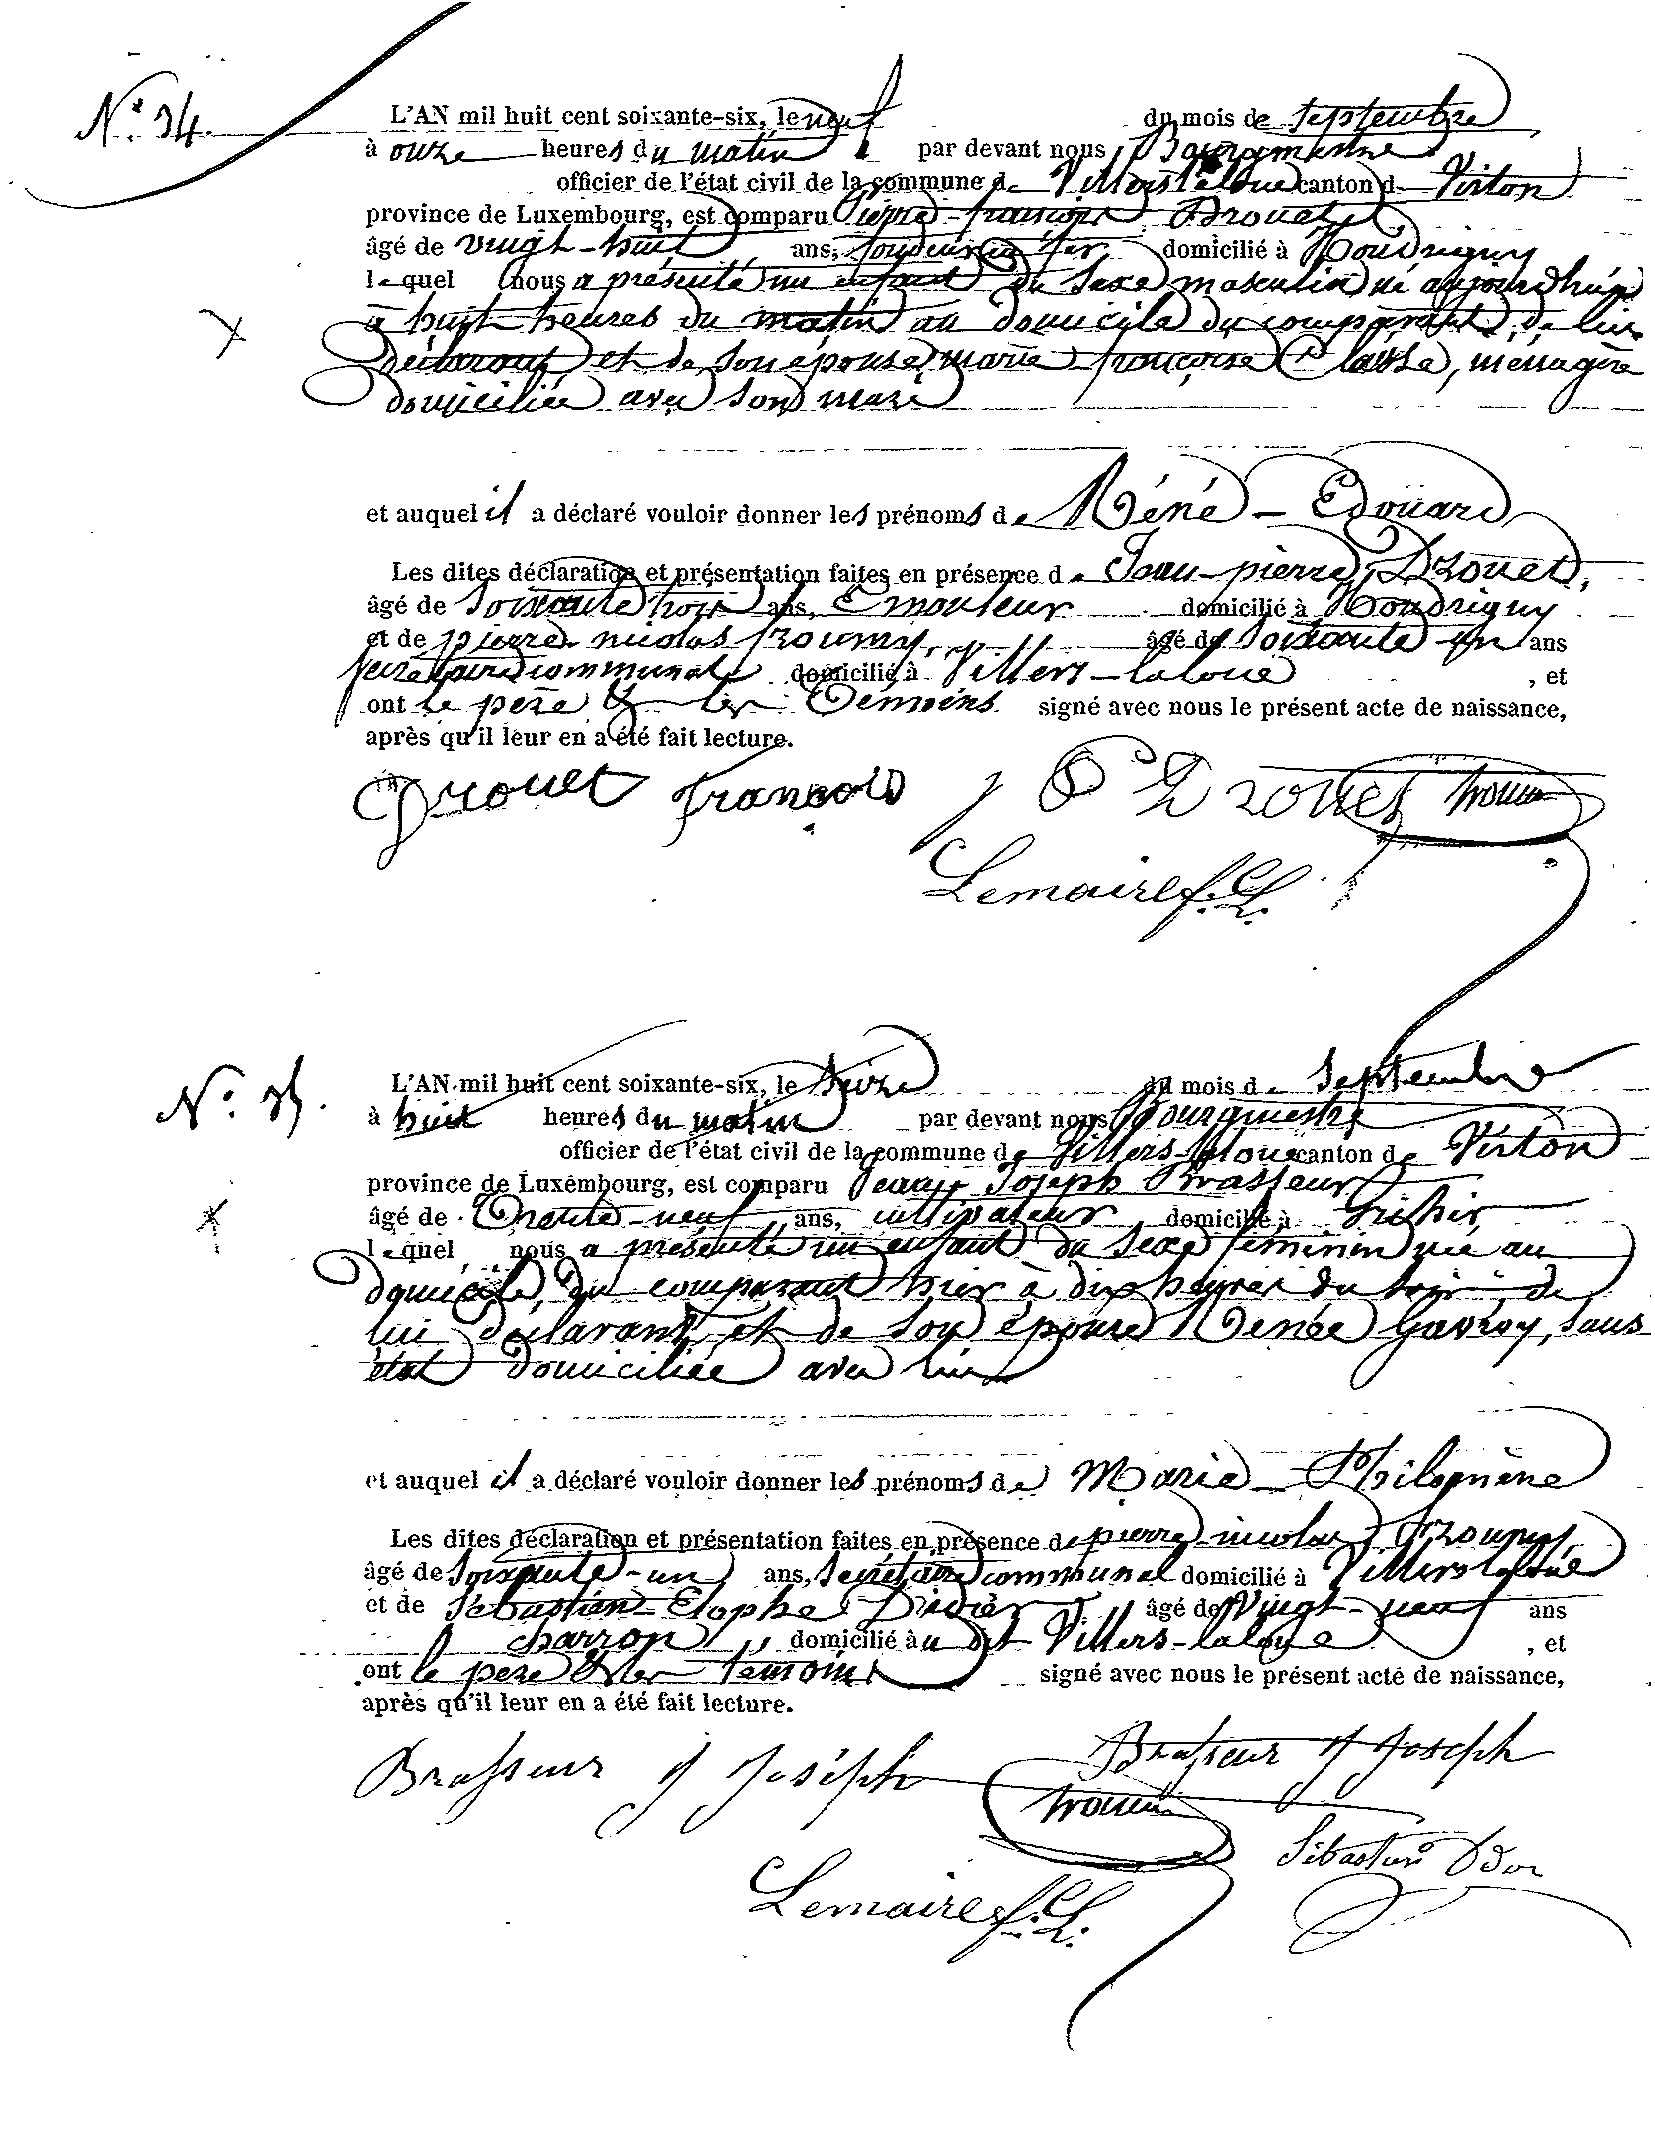 N° 34.
L'AN mil huit cent soixante-six, le neuf du mois de septembre
à onze heures du matin par devant nous Bourgmestre
officier de l'état civil de la commune de Villers laloue canton de Virton
province de Luxembourg, est comparu Pierre-françois Drouet
âgé de vingt-huit ans, fondeur en fer domicilié à Houdrigny
lequel nous a présenté un enfant du sexe masculin né aujourdhui
à huit heures du matin au domicile du comparant, de lui
déclarant et de son épouse marie françoise Clausse, ménagère
domiciliée avec son mari
et auquel il a déclaré vouloir donner les prénoms de Réné - Edouard
Les dites déclaration et présentation faites en présence de Jean-pierre Drouet,
âgé de soixante trois ans, Emouleur domicilié à Houdrigny
et de pierre nicolas âgé de soixante un ans
secrétaire communal domicilié à Villers-laloue , et
ont le père & les Témoins signé avec nous le présent acte de naissance,
après qu'il leur en a été fait lecture.
Drouet françois J P Drouet
Lemaire f. L.
N° 35.
L'AN mil huit cent soixante-six, le treize du mois de septembre
à huit heures du matin par devant nous Bourgmestre
officier de l'état civil de la commune de Villers-laloue canton de Virton
province de Luxembourg, est comparu Jean Joseph Brasseur
âgé de Trente-neuf ans, cultivateur domicilié à
lequel nous a présenté un enfant du sexe feminin née au
domicile du comparant hier à dix heures du soir de
lui déclarant et de son épouse Renée Gavroy, sans
état domiciliée avec lui
et auquel il a déclaré vouloir donner les prénoms de Marie - Philomène
Les dites déclaration et présentation faites en présence de pierre-nicolas
âgé de soixante-un ans, secrétaire communal domicilié à Villers laloue
et de Sébastien-Elophe Didier âgé de Vingt-neuf ans
charron domicilié à u dit Villers-laloue , et
ont le père & les témoins signé avec nous le présent acte de naissance,
après qu'il leur en a été fait lecture.
Brasseur J Joséph Brasseur J Joseph
Sébastien
Lemaire f. L.